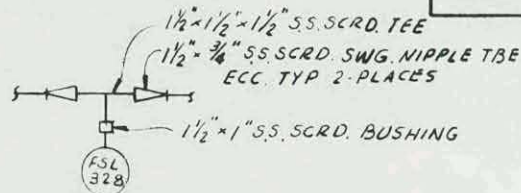 1 1/2" x 1 1/2" x 1 1/2" S.S. SCRD. TEE
1 1/2" x 3/4" S.S. SCRD. SWG. NIPPLE TBE
ECC. TYP 2-PLACES
1 1/2" x 1" S.S. SCRD. BUSHING
FSL
328